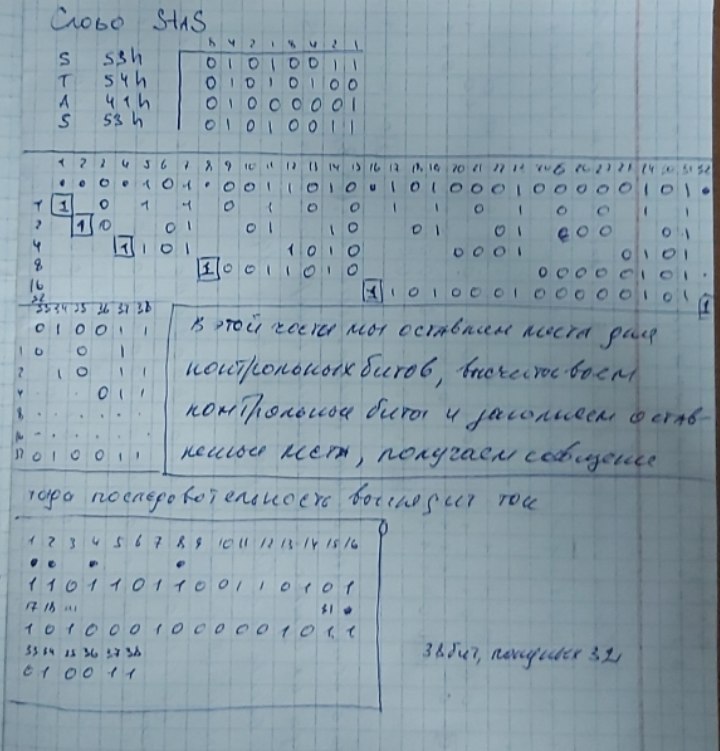 Слово STAS
8 4 2 1 8 4 2 1
S 53h 0 1 0 1 0 0 1 1
T 54h 0 1 0 1 0 1 0 0
A 41h 0 1 0 0 0 0 0 1
S 53h 0 1 0 1 0 0 1 1
1 2 3 4 5 6 7 8 9 10 11 12 13 14 15 16 17 18 19 20 21 22 23 24 25 26 27 28 29 30 31 32
• • 0 • 1 0 1 • 0 0 1 1 0 1 0 • 1 0 1 0 0 0 1 0 0 0 0 0 1 0 1 •
1 1 0 1 1 0 1 0 0 1 1 0 1 0 0 1 1
2 1 0 0 1 0 1 1 0 0 1 0 1 0 0 0 1
4 1 1 0 1 1 0 1 0 0 0 0 1 0 1 0 1
8 1 0 0 1 1 0 1 0 0 0 0 0 0 1 0 1
16 1 1 0 1 0 0 0 1 0 0 0 0 0 1 0 1
32 1
33 34 35 36 37 38
0 1 0 0 1 1
1 0 0 1
2 1 0 1 1
4 0 1 1
8
16
32 0 1 0 0 1 1
В этой части мы оставляем места для
контрольных битов, высчитываем
контрольные биты и заполняем остав-
ленные места, получаем сообщение
тогда последовательность выглядит так
1 2 3 4 5 6 7 8 9 10 11 12 13 14 15 16
1 1 0 1 1 0 1 1 0 0 1 1 0 1 0 1
17 18 ... 31
1 0 1 0 0 0 1 0 0 0 0 0 1 0 1 1
33 34 35 36 37 38
0 1 0 0 1 1
38 бит,
32